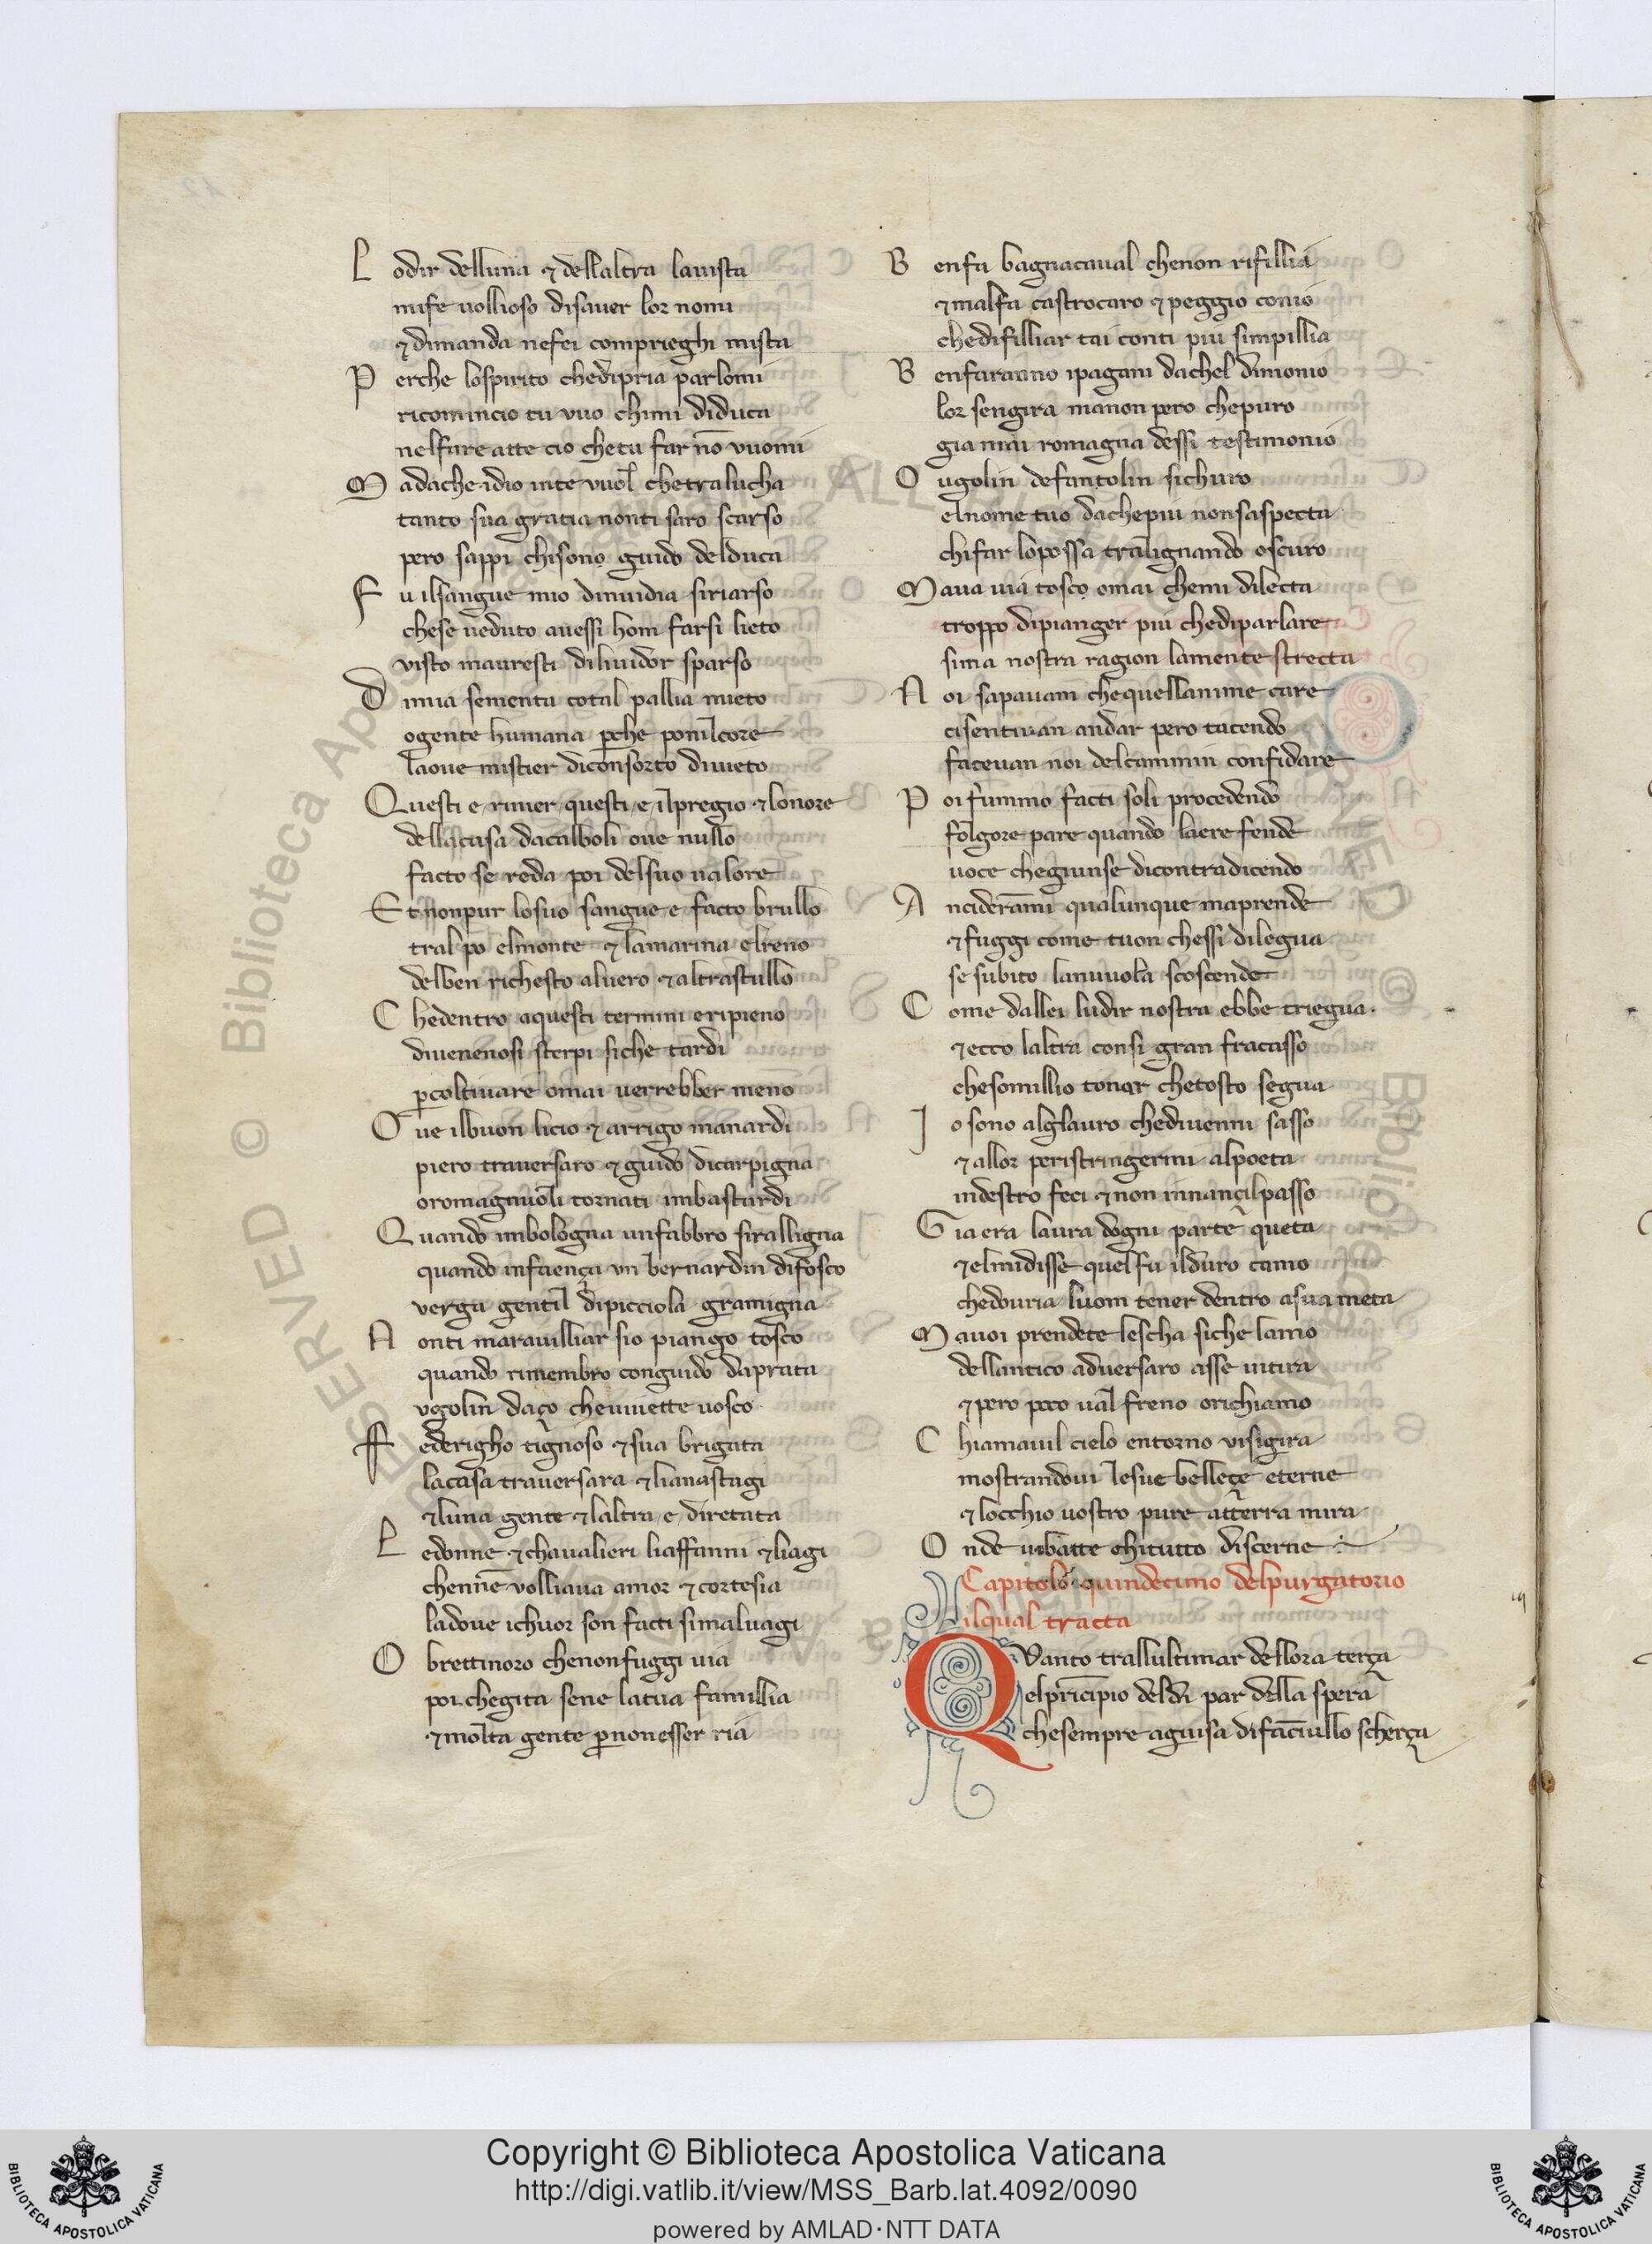 L odir delluna ⁊ dellaltra lauista
mife uollioso disauer lor nomi
⁊dimanda nefei comprieghi mista
P erche lospirito chedipria parlomi
ricomincio tu vuo chimi diduca
nelfare atte cio chetu far nō vuomi
M adache idio inte vuol chetralucha
tanto sua gratia nonti saro scarso
pero sappi chisono guido delduca
F u ilsangue mio dinuidia siriarso
chese ueduto auessi hom farsi lieto
visto mauresti diliuidor sparso
D imia sementa cotal pallia mieto
ogente humana ꝑche ponilcore
laoue mistier diconsorto diuieto
Questi e rinier questi e ilpregio ⁊lonore
dellacasa dacalboli oue nullo
facto se reda poi delsuo ualore
Et nonpur losuo sangue e facto brullo
tral po elmonte ⁊ lamarina elreno
delben richesto aluero ⁊altrastullo
C hedentro aquesti termini eripieno
diuenenosi sterpi siche tardi
ꝑcoltiuare omai uerrebber meno
O ue ilbuon licio ⁊ arrigo manardi
piero trauersaro ⁊ guido dicarpigna
oromagniuoli tornati imbastardi
Quando imbologna unfabbro siralligna
quando infaença vn bernardin difosco
verga gentil dipicciola gramigna
N onti marauilliar sio piango tosco
quando rimembro conguido daprata
vgolin daço cheuiuette uosco
Ff ederigho tignoso ⁊sua brigata
lacasa trauersara ⁊lianastagi
⁊luna gente ⁊laltra e diretata
L edonne ⁊chaualieri liaffanni ⁊liagi
chennē volliaua amor ⁊ cortesia
ladoue ichuor son facti simaluagi
O brettinoro chenonfuggi uia
poi chegita sene latua famillia
⁊molta gente ꝑnonesser ria
B enfa bagnacaual chenon rifillia
⁊malfa castrocaro ⁊ peggio conio
chedifilliar tai conti piu simpillia
B enfaranno ipagani dachel dimonio
lor sengira manon pero chepuro
gia mai romagna dessi testimonio
O ugolin defantolin sichuro
elnome tuo dachepiu nonsaspecta
chifar lopossa tralignando oscuro
Maua uia tosco omai chemi dilecta
troppo dipianger piu chediparlare
sima nostra ragion lamente strecta
N oi sapauam chequellanime care
cisentiuan andar pero tacendo
faceuan noi delcammin confidare
P oi fummo facti soli procedendo
folgore pare quando laere fende
uoce chegiunse dicontradicendo
A nciderāmi qualunque maprende
⁊fuggi come tuon chessi dilegua
se subito lanuuola scoscende
C ome dallei ludir nostra ebbe triegua
⁊ecco laltra consi gran fracasso
chesomillio tonar chetosto segua
I o sono alglauro chediuenni sasso
⁊allor peristringermi alpoeta
indestro feci ⁊non innançilpasso
Gia era laura dogni parte queta
⁊elmidisse quelfu ilduro camo
chedouria luom tener dentro asua meta
Mauoi prendete lescha siche lamo
dellantico aduersaro asse uitira
⁊pero poco ual freno orichiamo
C hiamauil cielo entorno visigira
mostrandoui lesue belleçe eterne
⁊locchio uostro pure atterra mira
O nde uibatte chitutto discerne
Capitolo quindecimo delpurgatorio
ilqual tracta
QVanto trallultimar dellora terça
elprīcipio deldi par della spera
chesempre aguisa difāciullo scherça
Copyright © Biblioteca Apostolica Vaticana
http://digi.vatlib.it/view/MSS_Barb.lat.4092/0090
powered by AMLAD·NTT DATA
BIBLIOTECA APOSTOLICA VATICANA
BIBLIOTECA APOSTOLICA VATICANA